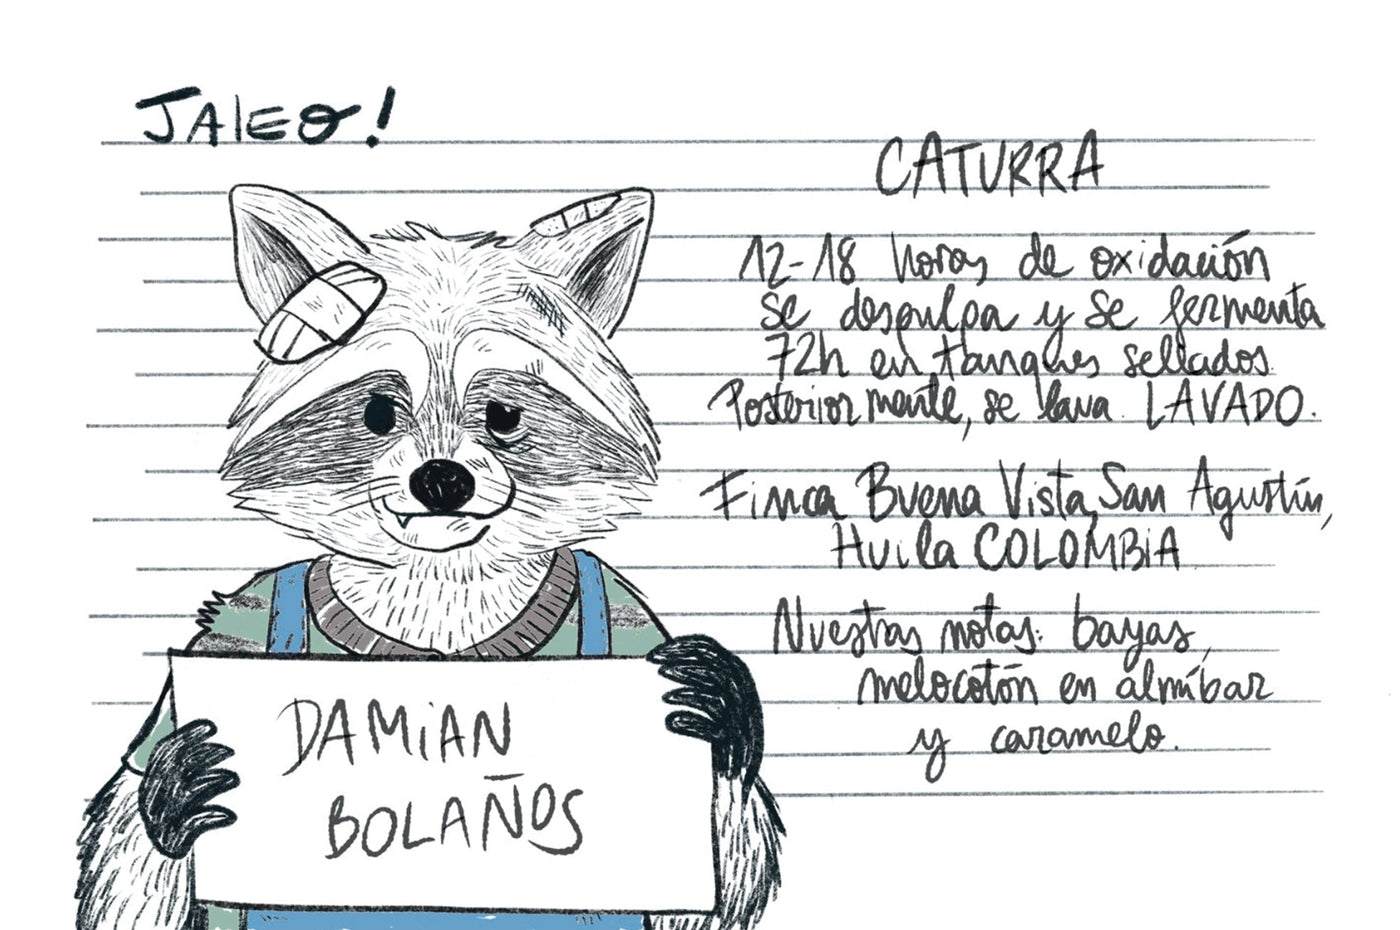 JALEO!
CATURRA
12-18 horas de oxidación
se despulpa y se fermenta
72h en tanques sellados.
Posteriormente, se lava. LAVADO.
Finca Buena Vista, San Agustín,
Huila COLOMBIA.
Nuestras notas: bayas,
melocotón en almíbar
y caramelo.
DAMIAN
BOLAÑOS